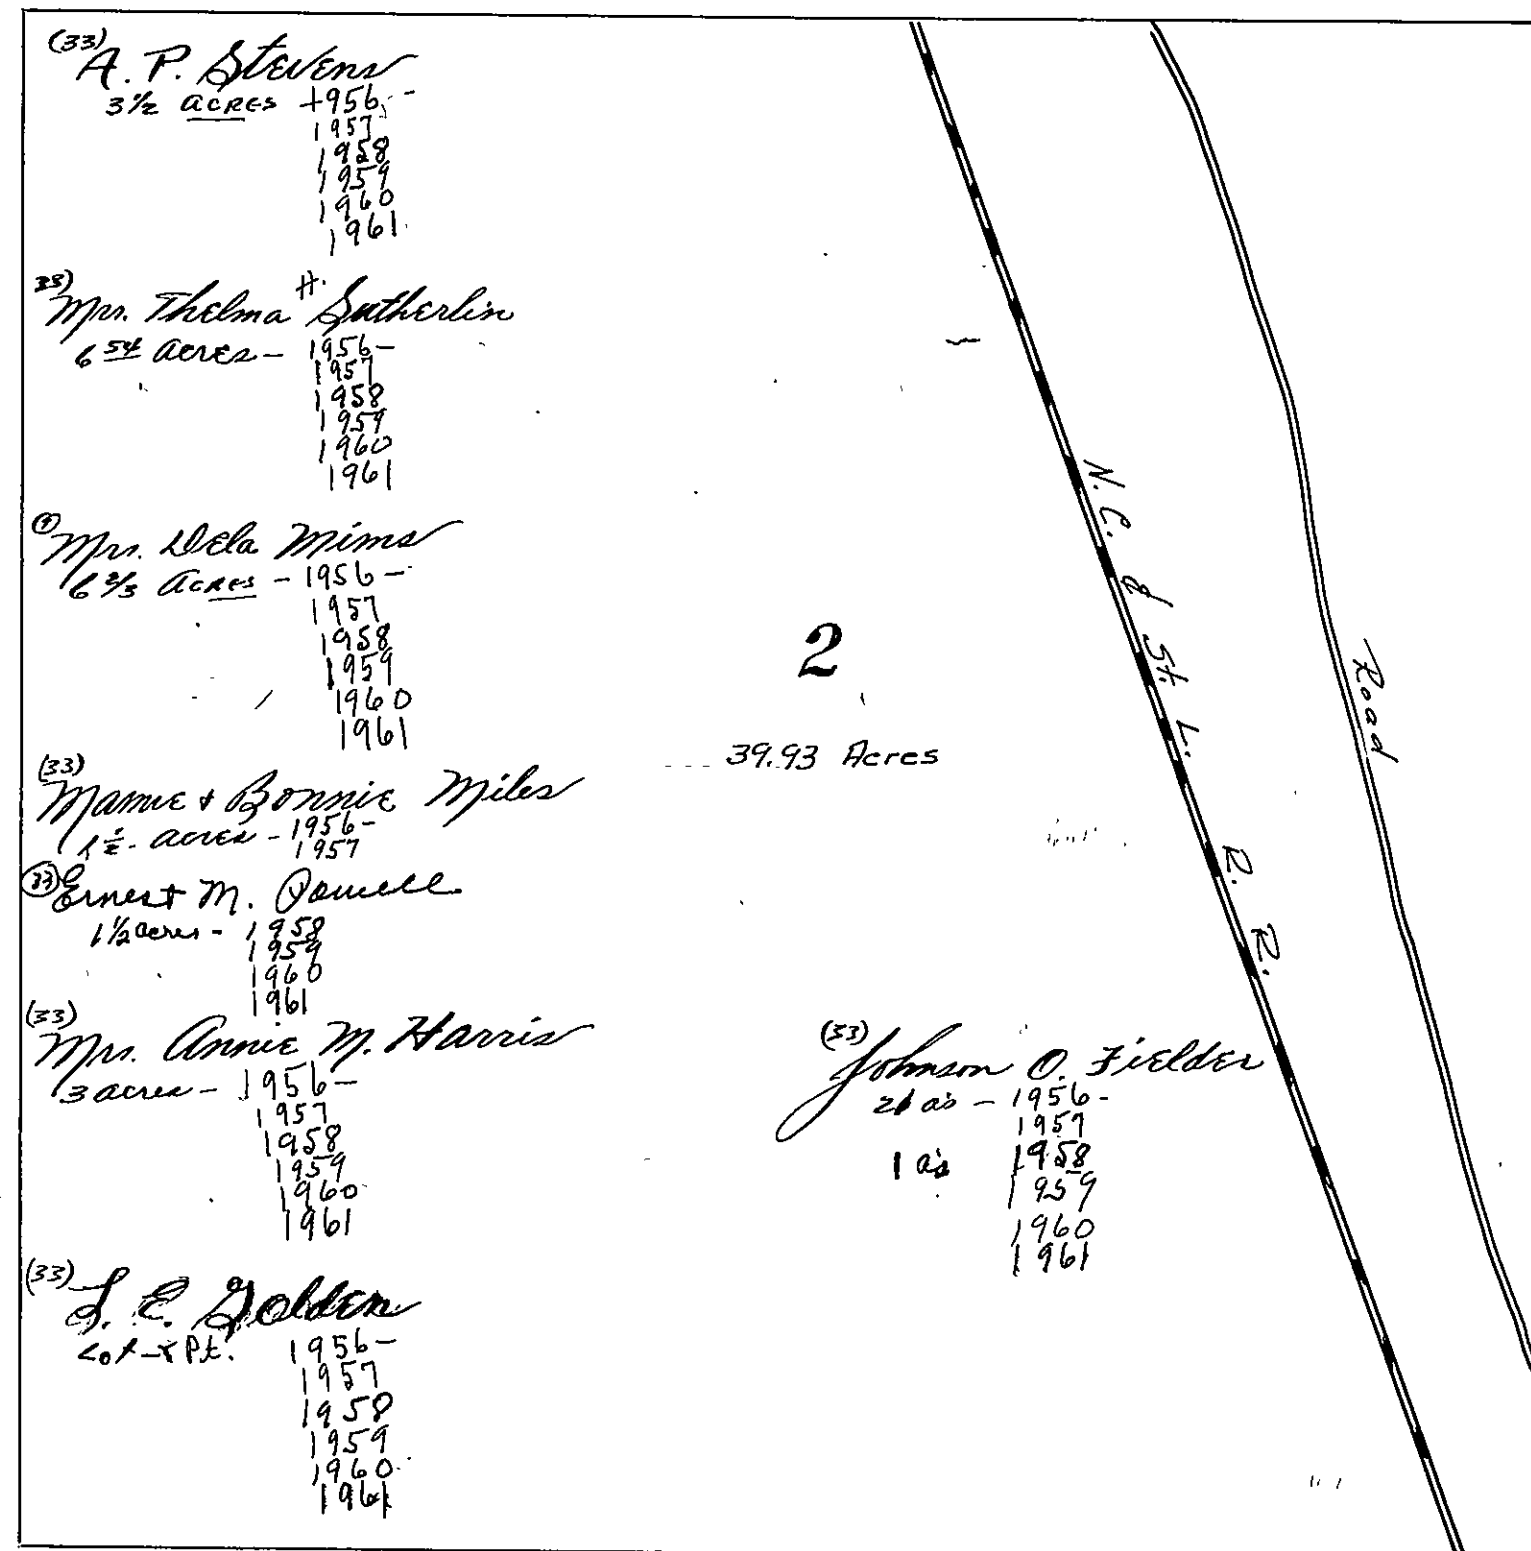 (33)
A. P. Stevens
3½ acres 1956 -
1957
1958
1959
1960
1961
33)
Mrs. Thelma H. Sutherlin
6 54 Acres - 1956 -
1957
1958
1959
1960
1961
Mrs. Dela Mims
6 2/3 Acres - 1956 -
1957
1958
1959
1960
1961
(33)
Mamie + Bonnie Miles
1½ - acres - 1956 -
1957
(33) Ernest M. Powell
1½ acres - 1958
1959
1960
1961
(33)
Mrs. Annie M. Harris
3 acres - 1956 -
1957
1958
1959
1960
1961
(33)
L. E. Golden
Lot - Pt. 1956 -
1957
1958
1959
1960
1961
2
39.93 Acres
(33)
Johnson O. Fielder
21 as - 1956 -
1957
1 as 1958
1959
1960
1961
N. C. & St. L. R. R.
Road